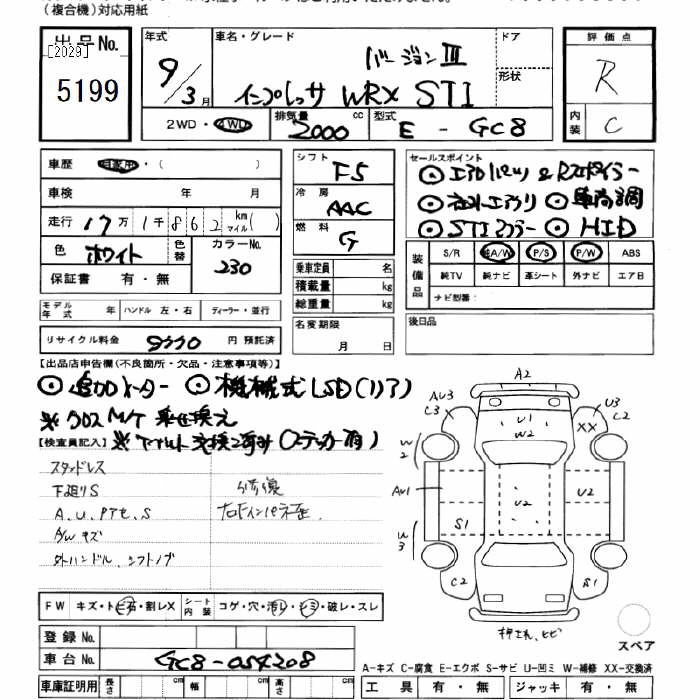 (複合機)対応用紙
出品No.
[2029]
5199
年式 9/3月
車名・グレード
バージョンⅢ
インプレッサ WRX STI
ドア
形状
評価点
R
内装 C
2WD・4WD 排気量 2000 cc 型式 E - GC8
車歴 自家用・( )
車検 年 月
走行 17万1千862 km マイル( )
色 ホワイト 色替 カラーNo. 230
保証書 有・無
シフト F5
冷房 AAC
燃料 G
乗車定員 名
積載量 kg
総重量 kg
セールスポイント
◎エアロパーツ & Rスポイラー
◎社外エアクリ ◎車高調
◎STIマフラー ◎HID
装備品
S/R 純A/W P/S P/W ABS
純TV 純ナビ 革シート 外ナビ エアB
ナビ型番:
モデル年式 年 ハンドル 左・右 ディーラー・並行
名変期限 月 日
後日品
リサイクル料金 円 預託済
【出品店申告欄(不良箇所・欠品・注意事項等)】
◎追加メーター ◎機械式LSD(リア)
※クロスM/T 乗せ換え
【検査員記入】 ※タイベルト交換済み(ステッカー有)
スタッドレス
下廻りS
A,U,Pアセ,S
A/Wキズ
外ハンドル、シフトノブ
修復
右Fインパネ歪
A2
AU3
C3
U1
W2
XX
U3
C2
W2
AU1
U2
U2
W3
S1
C2
S1
押され,ヒビ
スペア
FW キズ・トビ石・割レX シート内装 コゲ・穴・汚レ・シミ・破レ・スレ
登録No.
車台No. GC8-054208
車庫証明用 長さ cm 幅 cm 高さ cm
A-キズ C-腐食 E-エクボ S-サビ U-凹ミ W-補修 XX-交換済
工具 有・無 ジャッキ 有・無